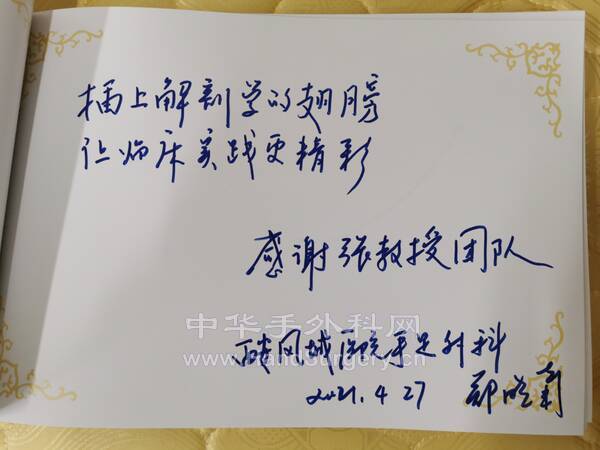 插上解剖学的翅膀
让临床实践更精彩
感谢张教授团队
中华手外科网
凤城医院手足外科
www.HandSurgery.cn
2021.4.27 郑晓菊